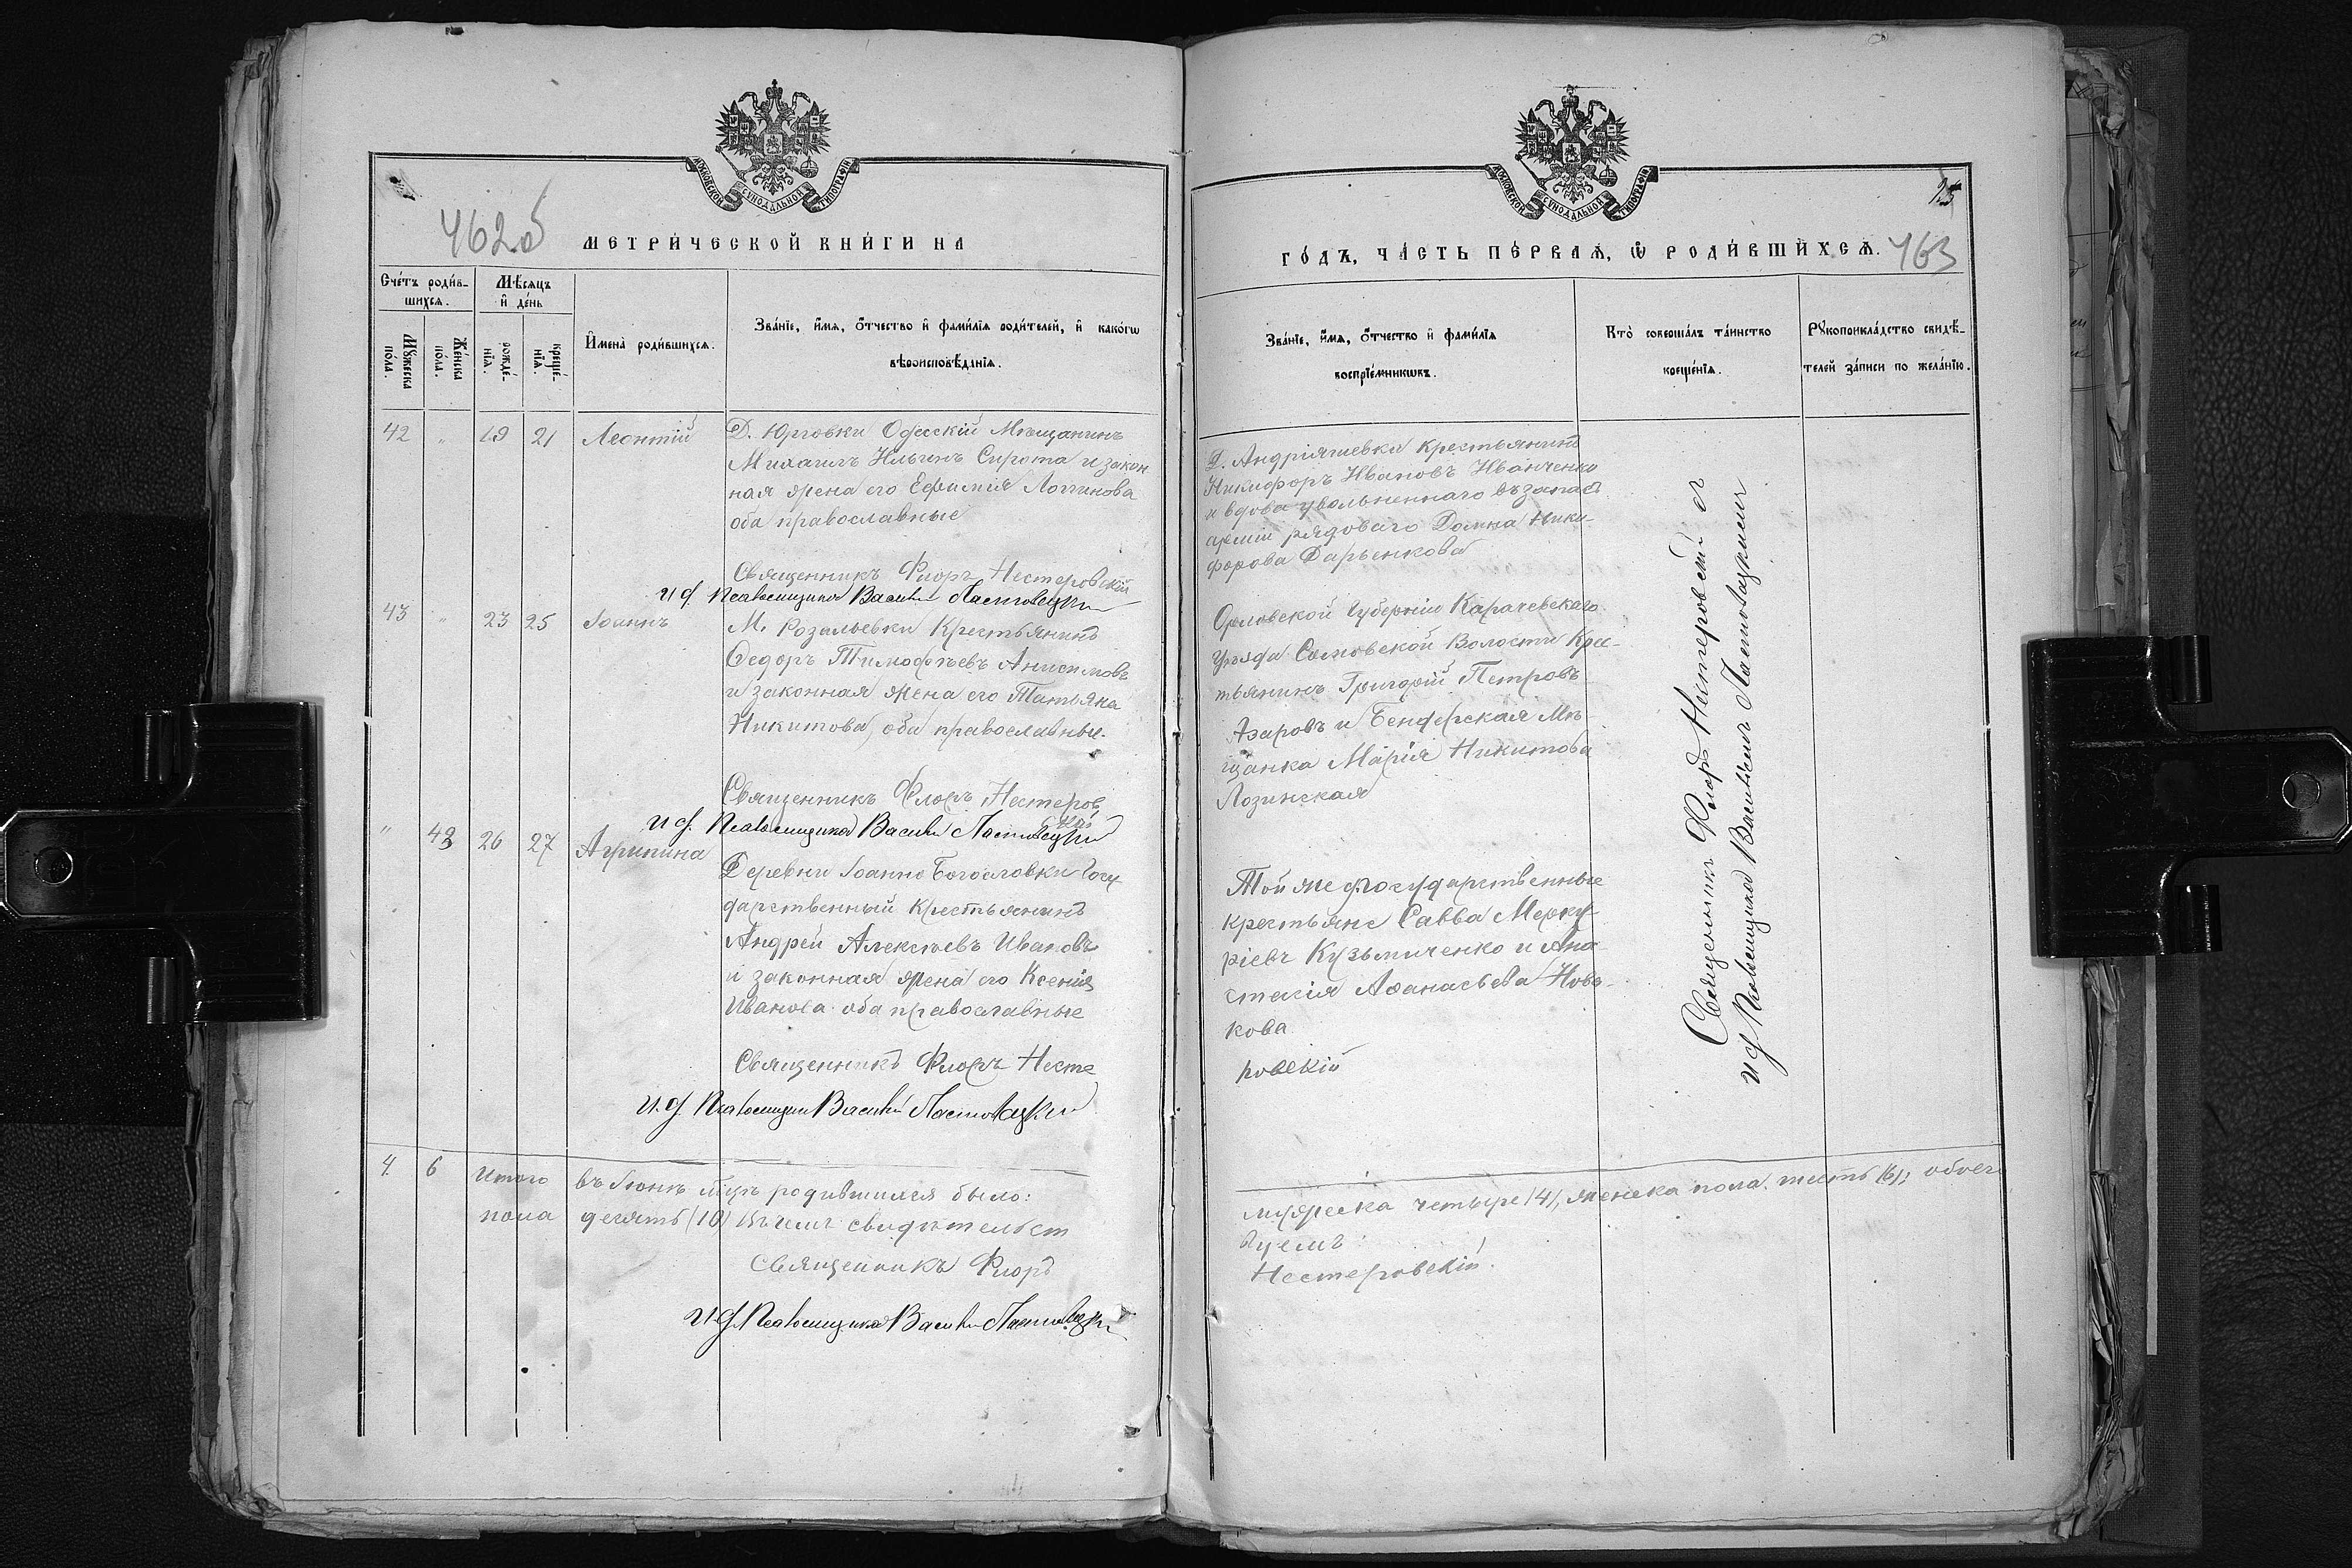 МОСКОВСКОЙ СѴНОДАЛЬНОЙ ТИПОГРАФІИ
462об
МЕТРИ́ЧЕСКОЙ КНИ́ГИ НА
Сче́тъ роди́в-
шихся.
Мѣ́сяцъ
и҆ де́нь
Мꙋ́жеска
по́ла.
Же́нска
по́ла.
рожде́-
нїѧ.
креще́-
нїѧ.
И҆мена̀ роди́вшихся.
Зва́нїе, и҆́мя, ѻ҆́тчество и҆ фами́лїя роди́телей, и҆ како́гѡ
вѣроисповѣ́данїя.
42 " 19 21 Леонтій
Д. Юрговки Одесскій Мѣщанинъ
Михаилъ Ильинъ Сирота и закон
ная жена его Ефимія Логгинова
оба православные
Священникъ Флоръ Нестеровскій
и д. Псаломщика Василій Ластовецкій
43 " 23 25 Іоаннъ
М. Розальевки Крестьянинъ
Ѳедоръ Тимофѣевъ Анисимовъ
и законная жена его Татьяна
Никитова, оба православные.
Священникъ Флоръ Нестеров
скій
и д. Псаломщика Василій Ластовецкій
" 43 26 27 Агрипина
Деревни Іоанно Богословки Госу
дарственный Крестьянинъ
Андрей Алексѣевъ Ивановъ
и законная жена его Ксенія
Иванова оба православные
Священникъ Флоръ Несте
и. д. Псаломщика Василій Ластовецкій
4 6 Итого въ Іюнѣ мцѣ родившихся было:
пола десять (10) въ чемъ свидѣтельст
Священникъ Флоръ
и д. Псаломщика Василій Ластовецкій
МОСКОВСКОЙ СѴНОДАЛЬНОЙ ТИПОГРАФІИ
25
ГО́ДЪ, ЧА́СТЬ ПЕ́РВАЯ, Ѡ҆ РОДИ́ВШИХСЯ. 463
Зва́нїе, и҆́мя, ѻ҆́тчество и҆ фами́лїя
воспрїе́мникѡвъ.
Кто̀ соверша́лъ та́инство
креще́нїя.
Рꙋкоприкла́дство свидѣ́-
телей за́писи по жела́нїю.
Д. Андріяшевки крестьянинъ
Никифоръ Ивановъ Иванченко
и вдова увольненнаго въ запасъ
арміи рядоваго Домна Ники-
форова Дарьенкова
Орловской Губерніи Карачевскаго
уѣзда Самовской Волости Крес-
тьянинъ Григорій Петровъ
Азаровъ и Бендерская Мѣ-
щанка Марія Никитова
Лозинская
Той же д. государственные
крестьяне Савва Мерку-
ріевъ Кузьмиченко и Ана
стасія Аѳанасьева Нова-
кова
ровскій
Священникъ Флоръ Нестеровскій съ
и д Псаломщика Василіемъ Ластовецкимъ
мужеска четыре (4), женска пола шесть (6); обоего
вуемъ:
Нестеровскій.